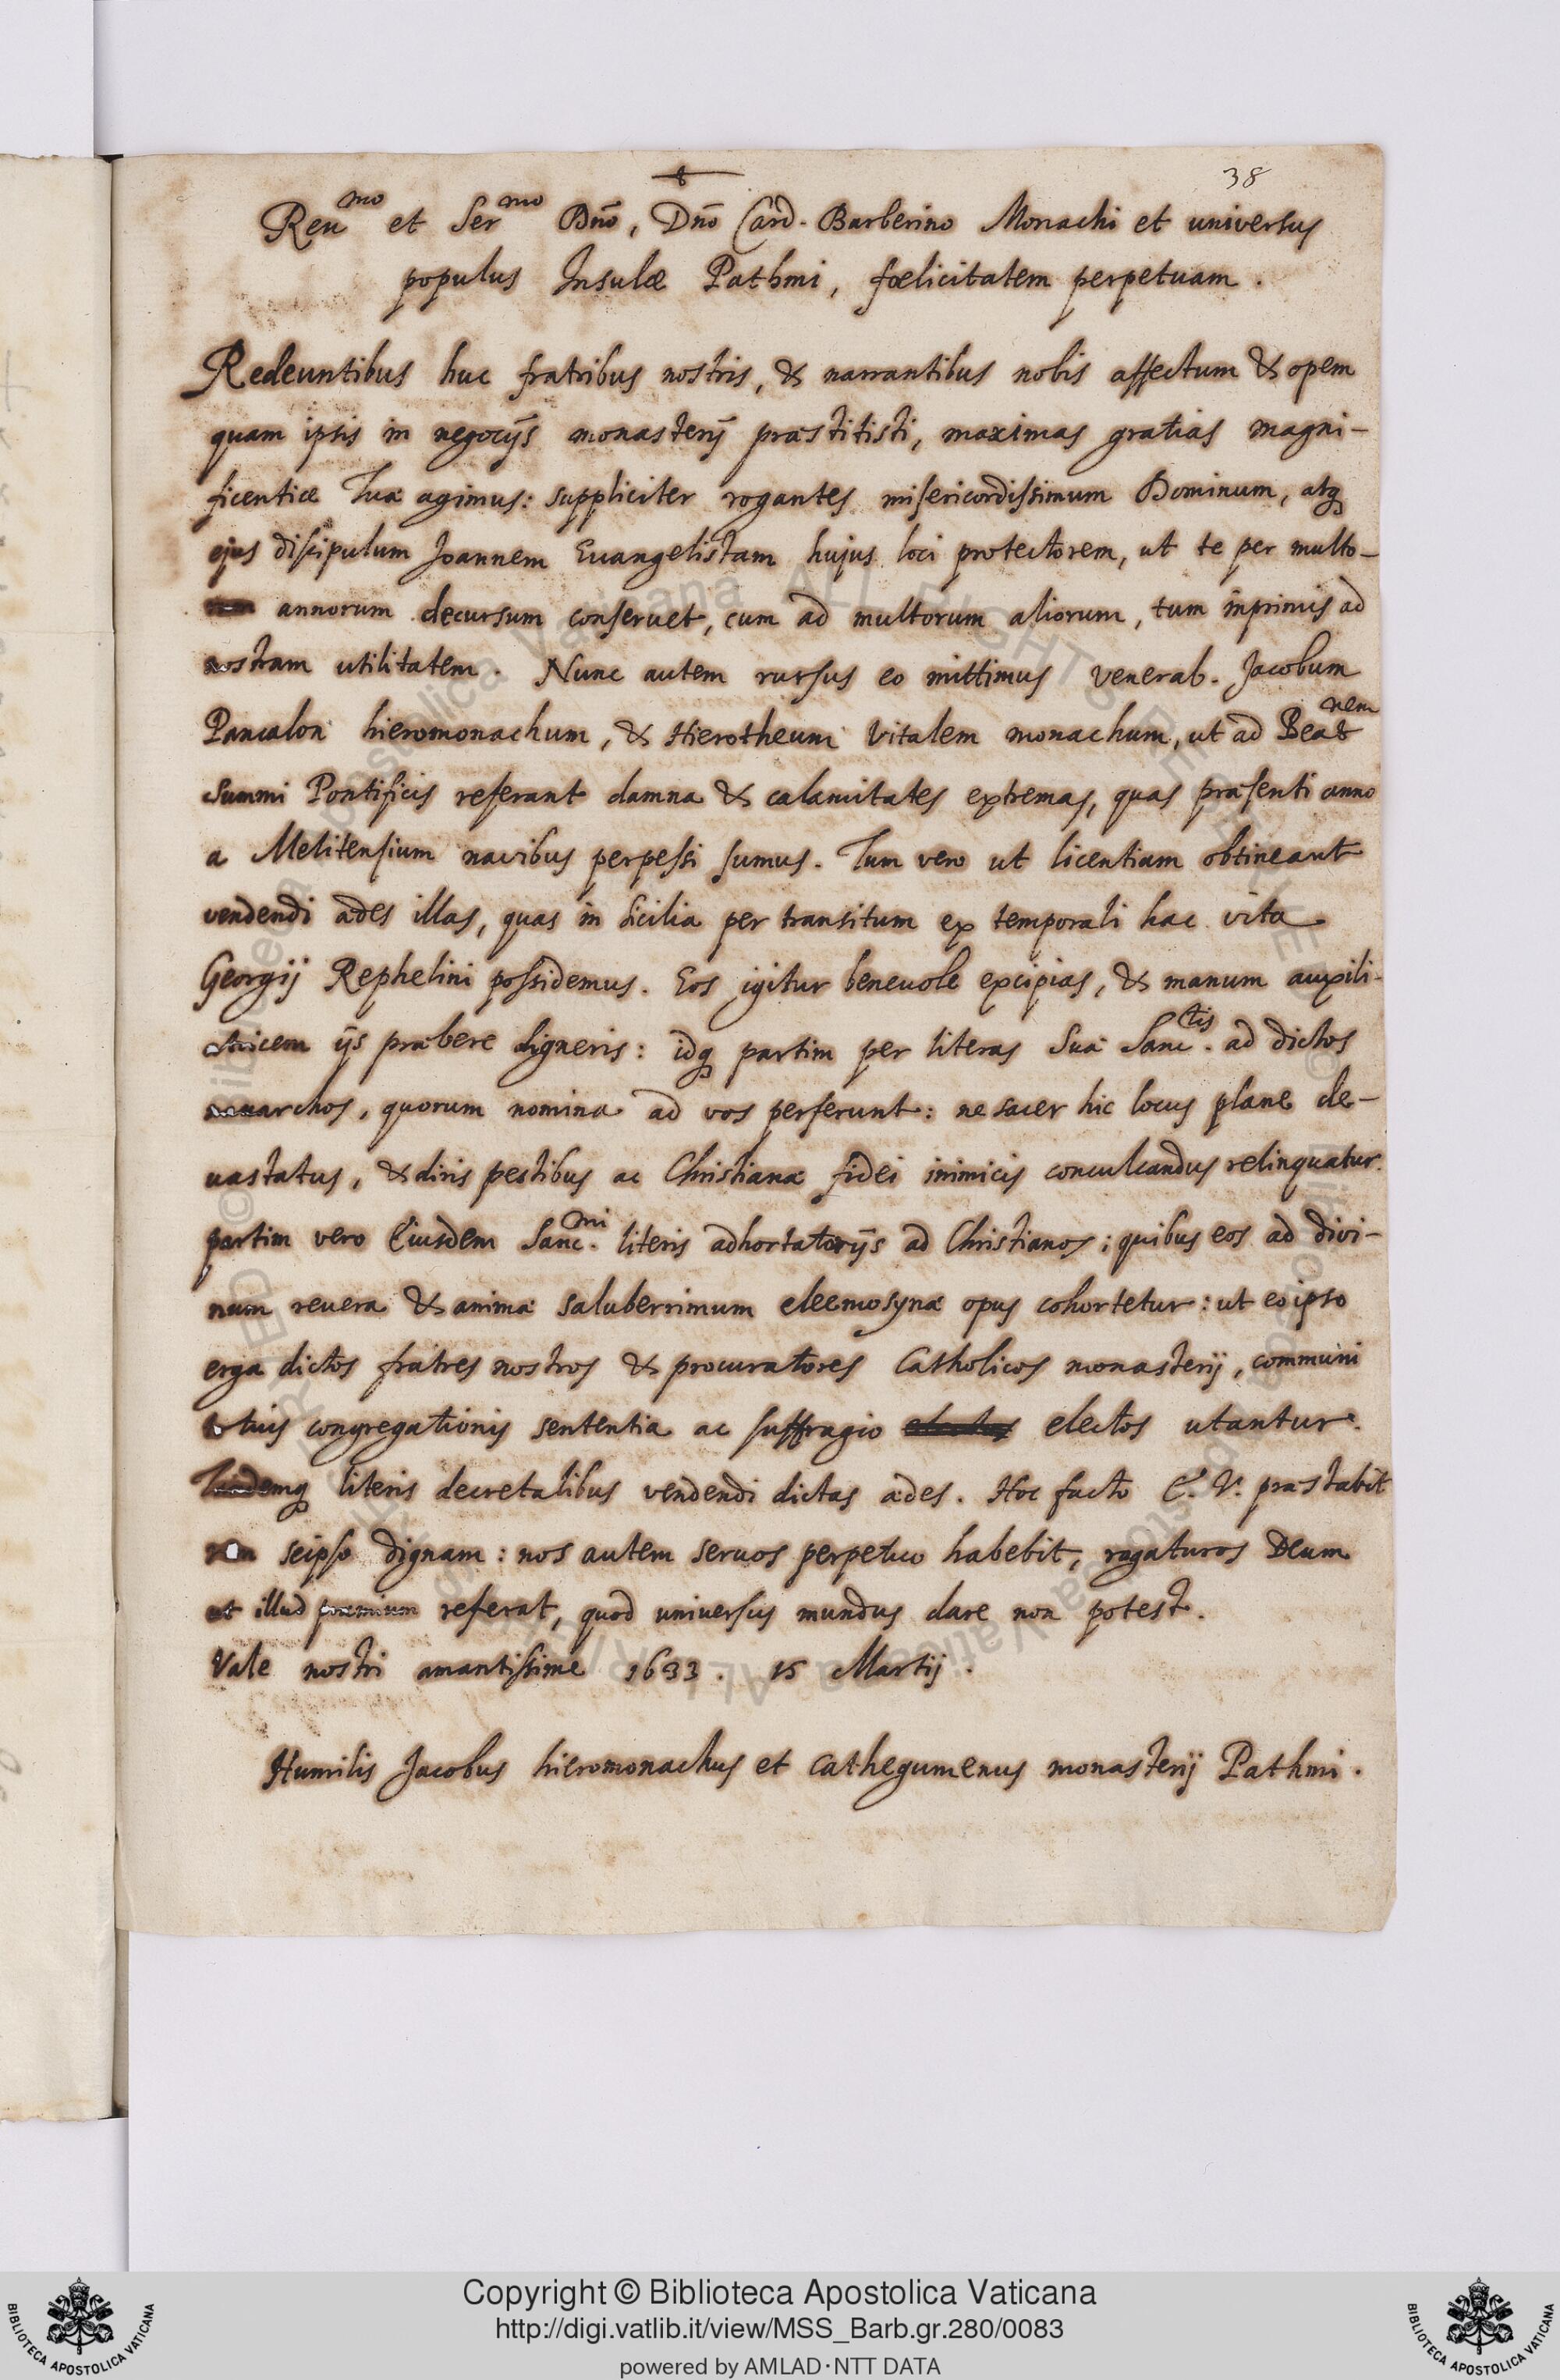 38
Reu^mo et Ser^mo Dño, Dño Card. Barberino Monachi et universus
populus Insulæ Pathmi, fœlicitatem perpetuam.
Redeuntibus huc fratribus nostris, & narrantibus nobis affectum & opem
quam ipsis in negocijs monasterij præstitisti, maximas gratias magni-
ficentiæ Tuæ agimus: suppliciter rogantes misericordissimum Dominum, atq
ejus discipulum Joannem Euangelistam hujus loci protectorem, ut te per multo-
annorum decursum conseruet, cum ad multorum aliorum, tum inprimis ad
nostram utilitatem. Nunc autem rursus eo mittimus venerab. Jacobum
Pancalon hieromonachum, & Hierotheum Vitalem monachum, ut ad Beat^nem
summi Pontificis referant damna & calamitates extremas, quas præsenti anno
a Melitensium navibus perpessi sumus. Tum vero ut licentiam obtineant
vendendi ædes illas, quas in Sicilia per transitum ex temporali hac vita
Georgij Rephelini possidemus. Eos igitur beneuole excipias, & manum auxili-
atricem ijs præbere digneris: idq partim per literas Suæ Sanc^tis. ad dictos
quorum nomina ad vos perferunt: ne sacer hic locus plane de-
uastatus, & diris pestibus ac Christianæ fidei inimicis conculcandus relinquatur.
partim vero Eiusdem Sanc^mi. literis adhortatorijs ad Christianos; quibus eos ad divi-
num reuera & animæ saluberrimum eleemosynæ opus cohortetur: ut eo ipso
erga dictos fratres nostros & procuratores Catholicos monasterij, communi
totius congregationis sententia ac suffragio electos utantur.
literis decretalibus vendendi dictas ædes. Hoc facto E. V. præstabit
rem seipso dignam: nos autem seruos perpetuo habebit, rogaturos Deum
ut illud præmium referat, quod universus mundus dare non potest.
Vale nostri amantissime 1633. 15 Martij.
Humilis Jacobus hieromonachus et cathegumenus monasterij Pathmi.
Copyright © Biblioteca Apostolica Vaticana
http://digi.vatlib.it/view/MSS_Barb.gr.280/0083
powered by AMLAD·NTT DATA
BIBLIOTECA APOSTOLICA VATICANA
BIBLIOTECA APOSTOLICA VATICANA